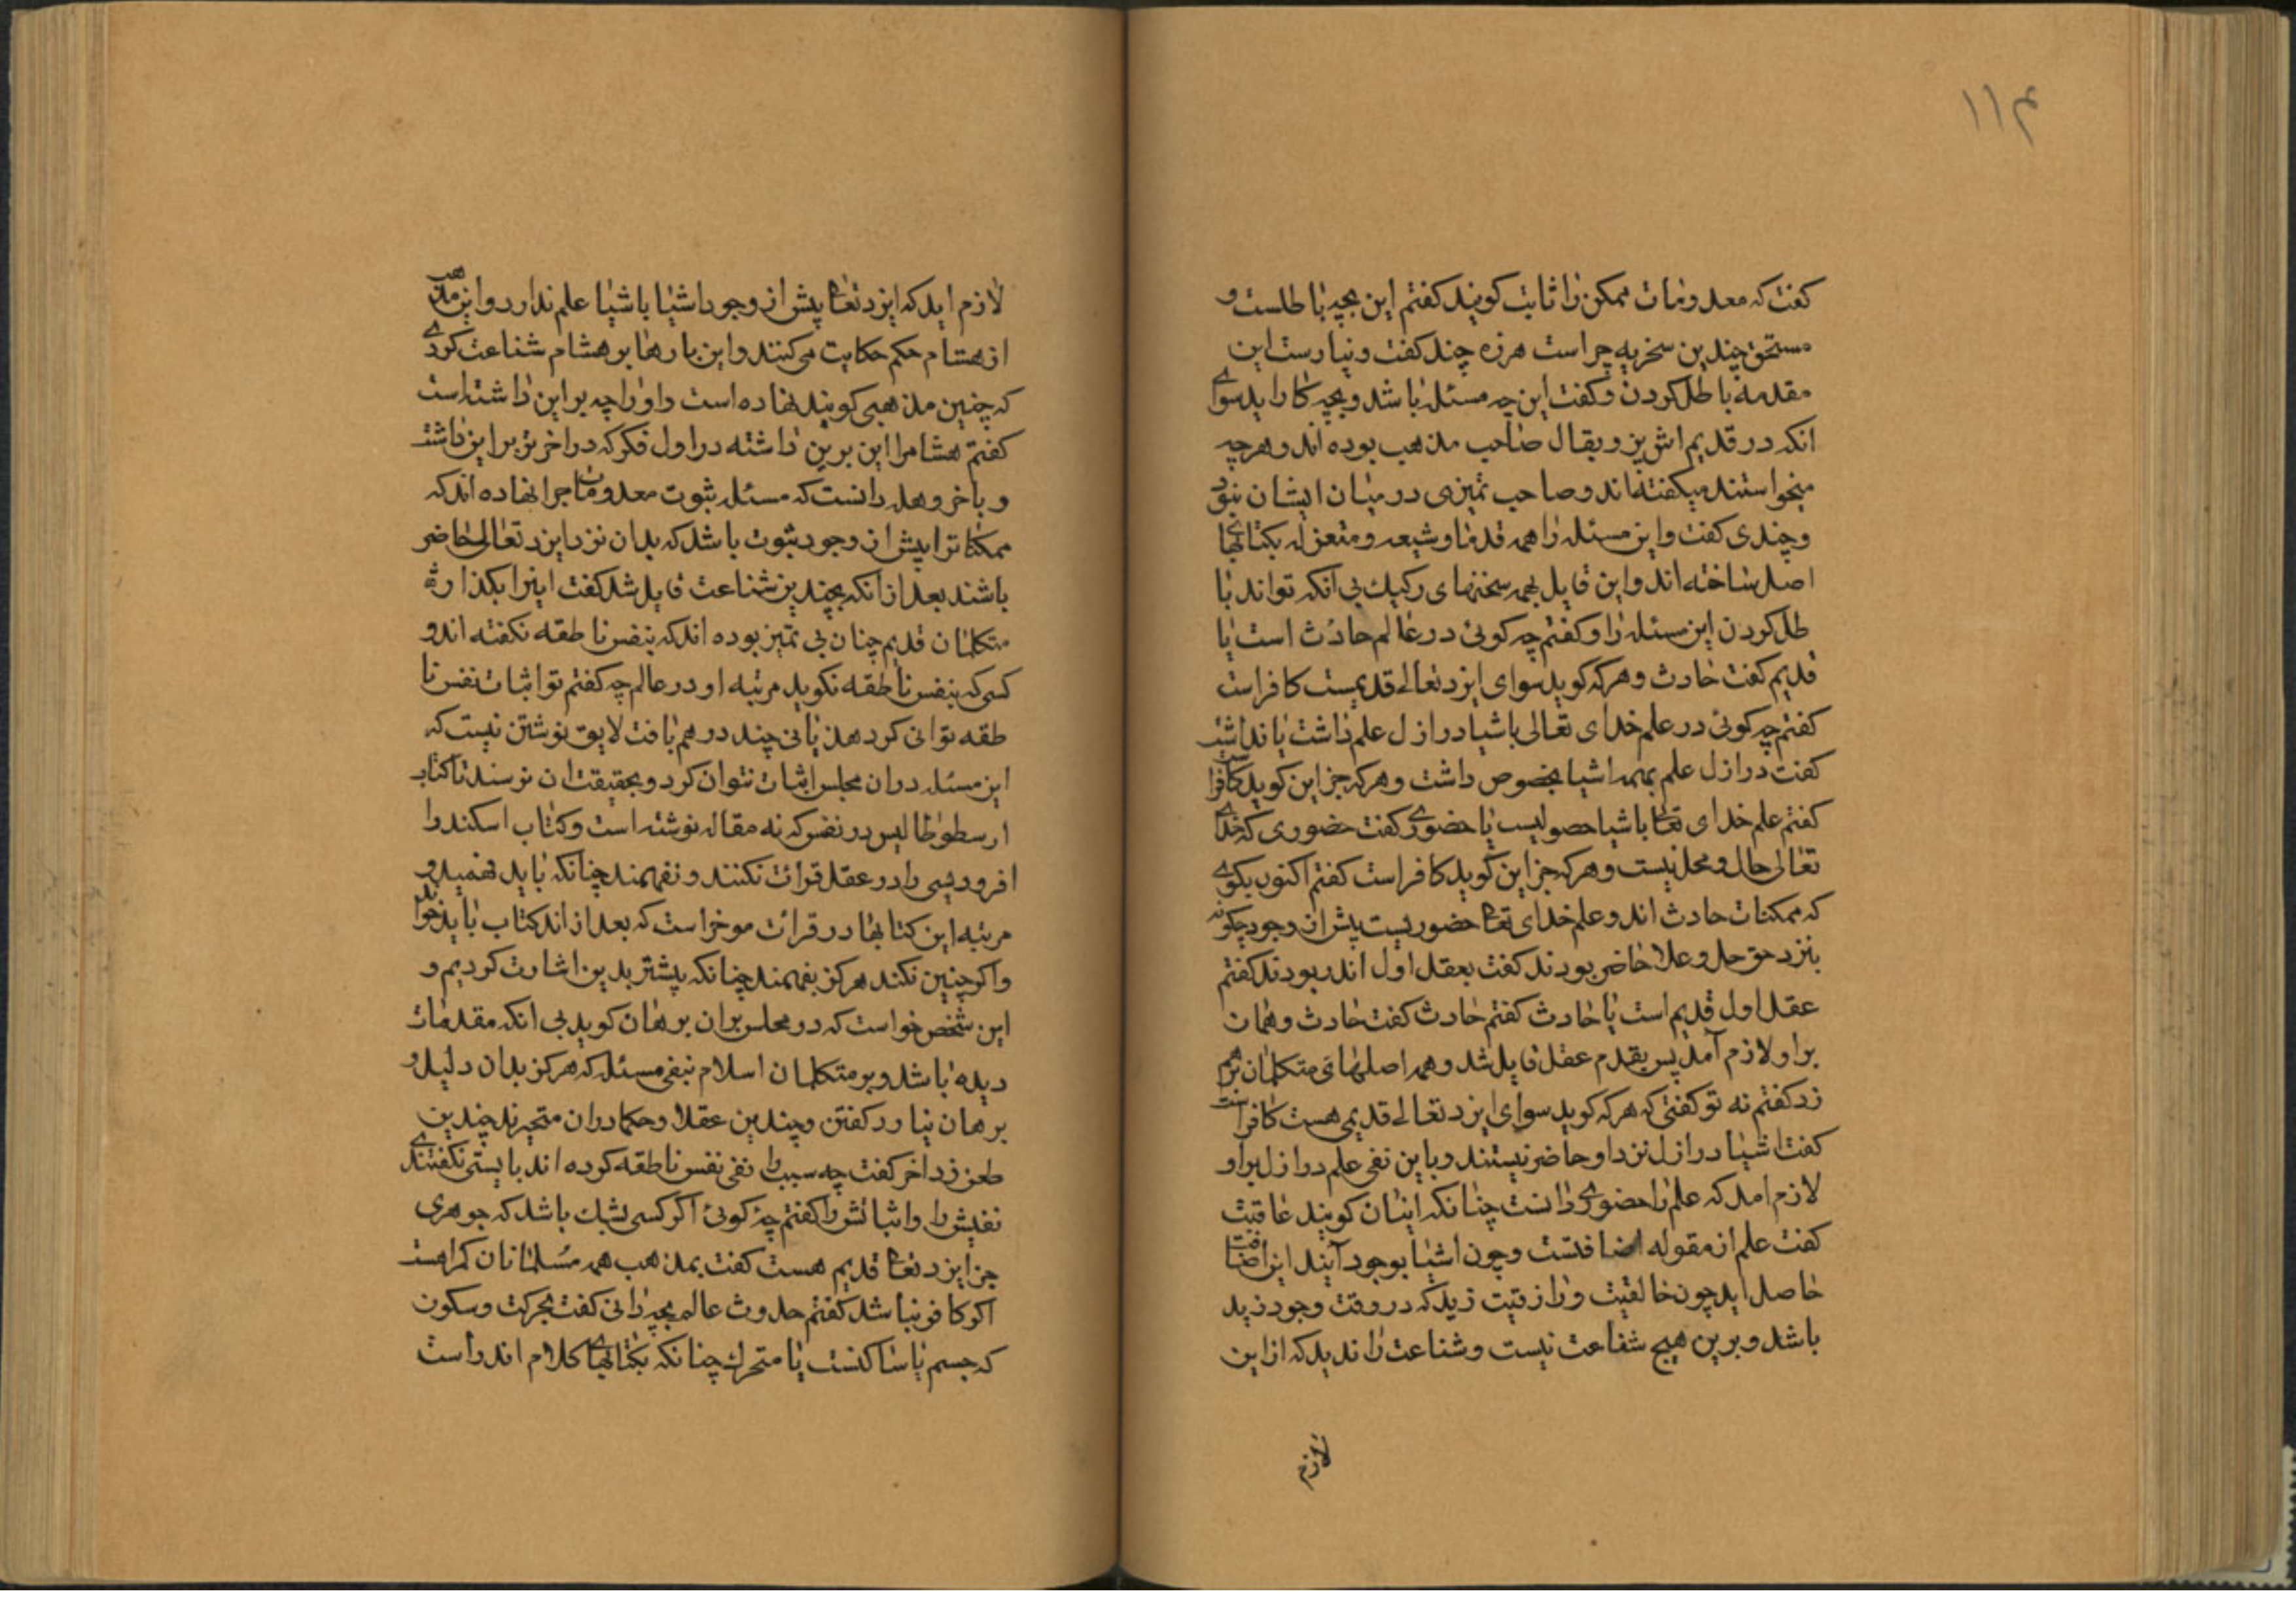 ۱۱۴
کفت که معدومات ممکن را ثابت کویند کفتم این بچه باطلست و
مستحق چندین سخریه چراست هرزه چند کفت و نیارست این
مقدمه باطل کردن و کفت این چه مسئله باشد و بچه کار اید سوای
انکه در قدیم اش پز و بقال صاحب مذهب بوده اند و هر چه
میخواستند میکفته اند و صاحب تمیزی در میان ایشان نبود
و چندی کفت و این مسئله را همه قدما و شیعه و متعزله بکتابها
اصل ساخته اند و این قایل بهمه سخنهای رکیک بی انکه تواند با
طل کردن این مسئله را و کفتم چه کوئی در عالم حادث است یا
قدیم کفت حادث و هر که کوید سوای ایزد تعالی قدیمیست کافر است
کفتم چه کوئی در علم خدای تعالی باشیا در ازل علم داشت یا نداشت
کفت در ازل علم بهمه اشیا بخصوص داشت و هر که جز این کوید کافر است
کفتم علم خدای تعا باشیا حصولیست یا حضوری کفت حضوری که خدای
تعالی حال و محل نیست و هر که جز این کوید کافر است کفتم اکنون بکوی
که ممکنات حادث اند و علم خدای تعا حضوریست پیش از وجود چکونه
بنزد حق جل و علا حاضر بودند کفت بعقل اول اندر بودند کفتم
عقل اول قدیم است یا حادث کفتم حادث کفت حادث و همان
بر او لازم آمد پس بقدم عقل قایل شد و همه اصلهای متکلمان بر هم
زد کفتم نه تو کفتی که هر که کوید سوای ایزد تعالی قدیمی هست کافر است
کفت اشیا در ازل نزد او حاضر نیستند و باین نفی علم در ازل بر او
لازم امد که علم را حضوری دانست چنانکه اینان کویند عاقبت
کفت علم از مقوله اضافتست و چون اشیا بوجود آیند این اضافت
حاصل اید چون خالقیت و رازقیت زید که در وقت وجود زید
باشد و برین هیچ شفاعت نیست و شناعت را ندید که از این
لازم
لازم اید که ایزد تعا پیش از وجود اشیا باشیا علم ندارد و این مذهب
از هشام حکم حکایت می کنند و این بارها بر هشام شناعت کردی
که چنین مذهبی کویند نهاده است و او را چه بر این داشته است
کفتم هشام را این برین داشته در اول فکر که در اخر تو برا برین داشت
و باخر وهله دانست که مسئله ثبوت معدومات چرا نهاده اند که
ممکناترا پیش از وجود ثبوت باشد که بدان نزد ایزد تعالی حاضر
باشند بعد از انکه بچندین شناعت قایل شد کفت اینرا بکذار
متکلمان قدیم چنان بی تمیز بوده اند که بنفس ناطقه نکفته اند و
کسی که بنفس ناطقه نکوید مرتبه او در عالم چه کفتم تو اثبات نفس نا
طقه توانی کرد هذیانی چند در هم بافت لایق نوشتن نیست که
این مسئله در ان مجلس اثبات نتوان کرد و بحقیقت ان نرسند تا کتاب
ارسطوطالیس در نفس که نه مقاله نوشته است و کتاب اسکندر
افرودیسی را در عقل قرائت نکنند و نفهمند چنانکه باید فهمید و
مرتبه این کتابها در قرائت موخر است که بعد از اند کتاب باید خواند
و اکر چنین نکند هرکز بفهمند چنانکه پیشتر بدین اشارت کردیم و
این شخص خواست که در مجلس بران برهان کوید بی انکه مقدمات
دیده باشد و بر متکلمان اسلام بنفی مسئله که هرکز بدان دلیل و
برهان نیاورد کفتن و چندین عقلا و حکما در ان متحیرند چندین
طعن زد اخر کفت چه سبب را نفی نفس ناطقه کرده اند بایستی نکفتندی
نفیش را و اثباتش را کفتم چه کوئی اکر کسی بشک باشد که جوهری
جز ایزد تعا قدیم هست کفت بمذهب همه مسلمانان کمراهست
اکر کافر نباشد کفتم حدوث عالم بچه دانی کفت بحرکت و سکون
که جسم یا ساکنست یا متحرک چنانکه بکتابهای کلام اندر است